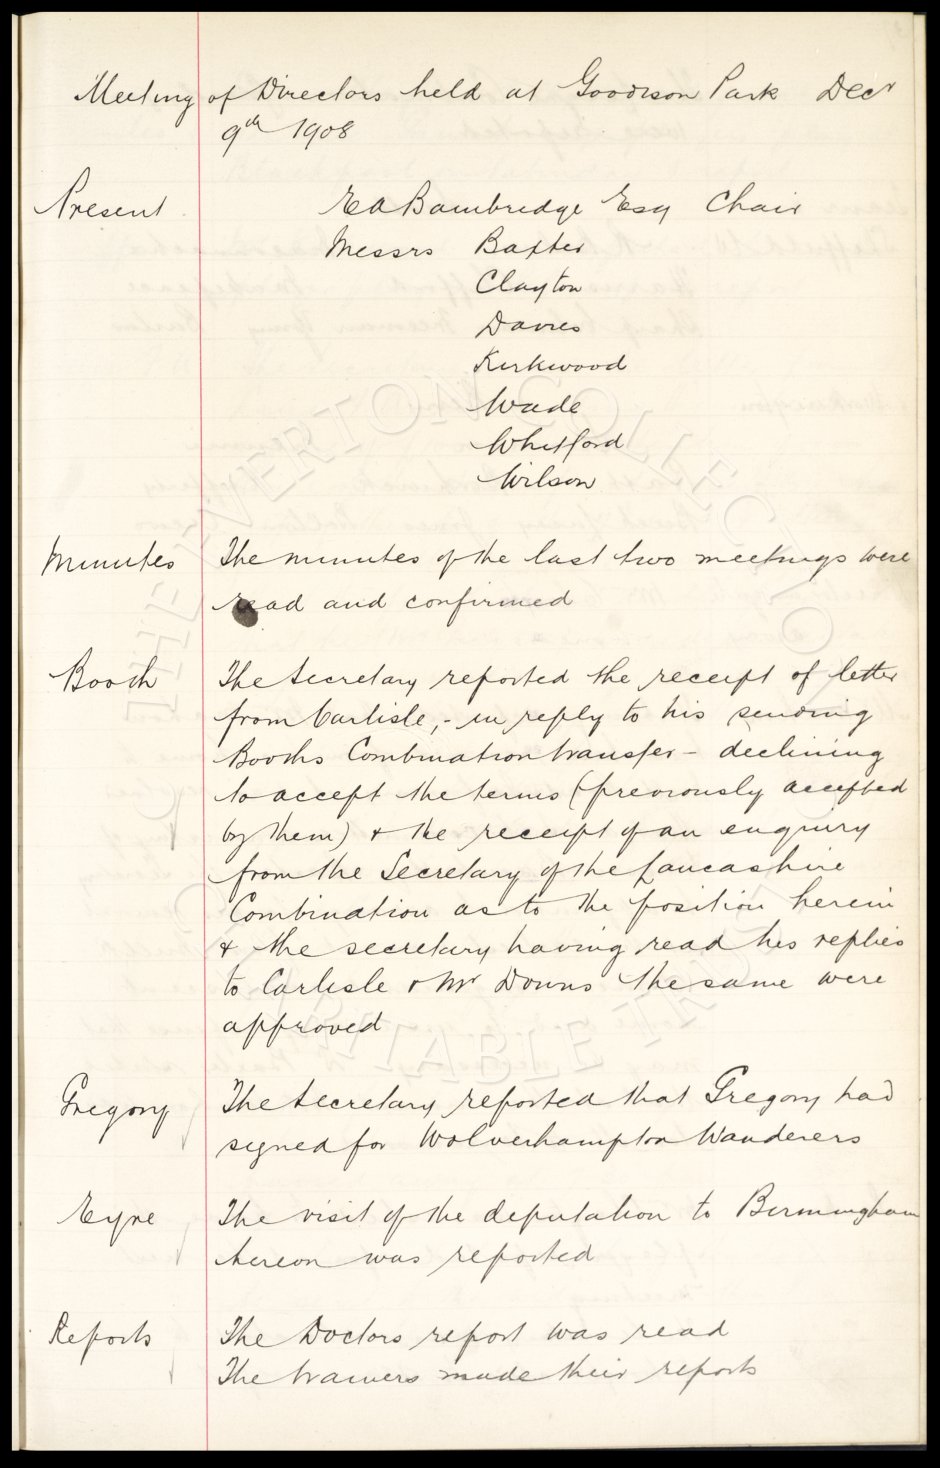 Meeting of Directors held at Goodison Park Decr
9th 1908
Present
E A Bainbridge Esq Chair
Messrs Baxter
Clayton
Davies
Kirkwood
Wade
Whitford
Wilson
Minutes The minutes of the last two meetings were
read and confirmed
Booth The Secretary reported the receipt of letter
from Carlisle, - in reply to his sending
Booths Combination transfer - declining
to accept the terms (previously accepted
by them) & the receipt of an enquiry
from the Secretary of the Lancashire
Combination as to the position herein
& the secretary having read his replies
to Carlisle & Mr Downs the same were
approved
Gregory The Secretary reported that Gregory had
signed for Wolverhampton Wanderers
Eyre The visit of the deputation to Birmingham
hereon was reported
Reports The Doctors report was read
The trainers made their reports
THE EVERTON COLLECTION
CHARITABLE TRUST